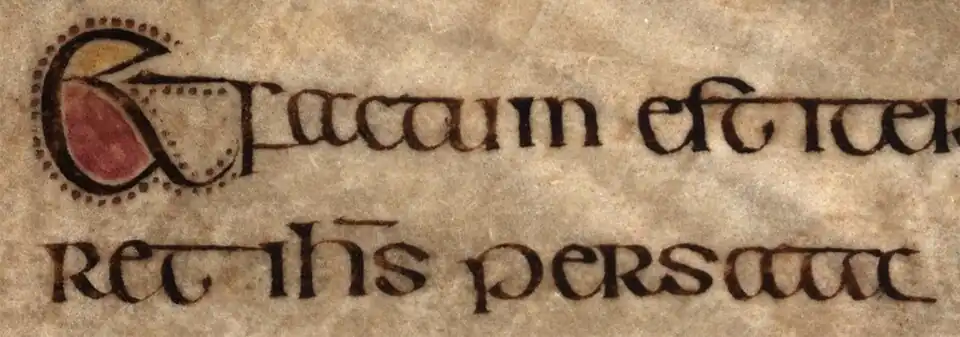 Et factum est iter
ret ihs̄ persata